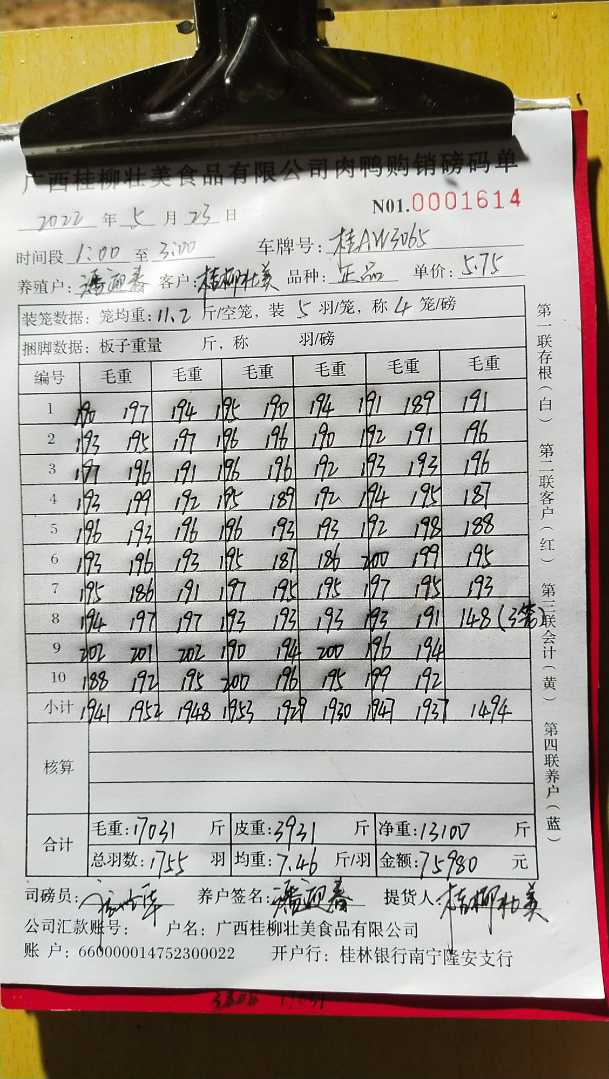 广西桂柳壮美食品有限公司肉鸭购销磅码单
2022 年 5 月 23 日 N01.0001614
时间段 1:00 至 3:00 车牌号: 桂AW3065
养殖户: 潘迎春 客户: 桂柳壮美 品种: 正品 单价: 5.75
装笼数据: 笼均重: 11.2 斤/空笼, 装 5 羽/笼, 称 4 笼/磅
捆脚数据: 板子重量 斤, 称 羽/磅
编号 毛重 毛重 毛重 毛重 毛重
1 190 197 194 195 190 194 191 189 191
2 193 195 197 196 196 190 192 191 196
3 187 196 191 196 196 192 193 193 196
4 193 199 192 195 189 192 194 195 187
5 196 193 196 196 193 193 192 198 188
6 193 196 193 195 187 186 200 199 195
7 195 186 191 197 195 195 197 195 193
8 194 197 197 193 193 193 193 191 148 (3笼)
9 202 201 202 190 194 200 196 194
10 188 192 195 200 196 195 199 192
小计 1941 1952 1948 1953 1929 1930 1947 1937 1494
核算
合计 毛重: 17031 斤 皮重: 3931 斤 净重: 13100 斤
总羽数: 1755 羽 均重: 7.46 斤/羽 金额: 75980 元
司磅员: 养户签名: 潘迎春 提货人: 桂柳壮美
公司汇款账号: 户名: 广西桂柳壮美食品有限公司
账 户: 660000014752300022 开户行: 桂林银行南宁隆安支行
第一联存根(白) 第二联客户(红) 第三联会计(黄) 第四联养户(蓝)